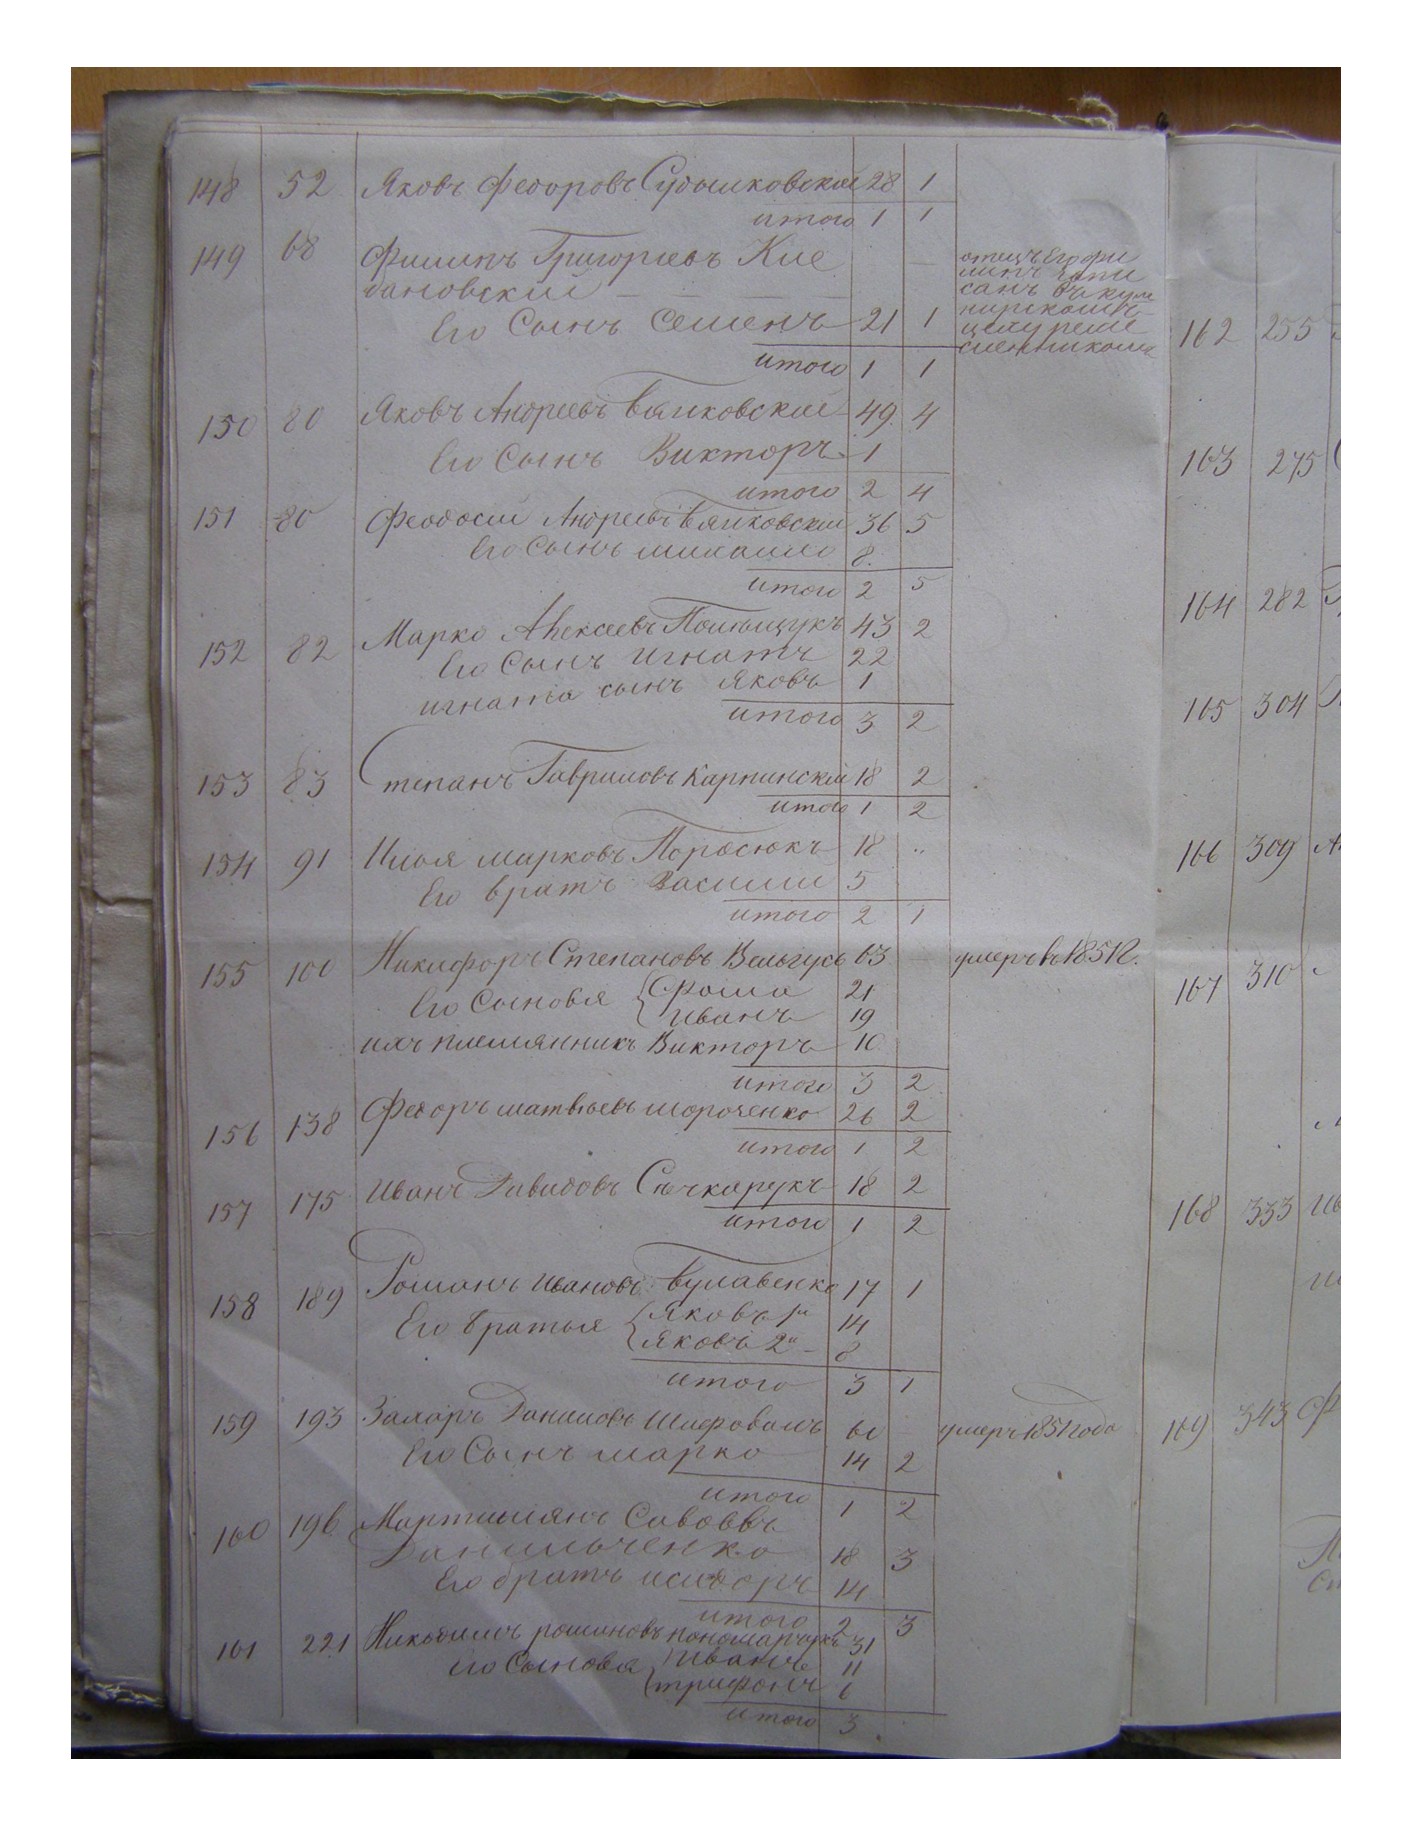 148 52 Яковъ Федоровъ Судышковский 28 1
итого 1 1
149 68 Филипъ Григорьевъ Кие
вановский — — — —
Его Сынъ Семенъ 21 1
отецъ Его фи
липъ запи
санъ въ
цеху реме
сленникомъ
итого 1 1
150 80 Яковъ Андреевъ 49 4
Его Сынъ Викторъ 1
итого 2 4
151 80 Феодосий Андреевъ 36 5
Его Сынъ михайло 8
итого 2 5
152 82 Марко Алексеевъ Полищукъ 43 2
Его Сынъ игнатъ 22
игната сынъ Яковъ 1
итого 3 2
153 83 Степанъ Гавриловъ Карпинский 18 2
итого 1 2
154 91 Илья марковъ Порасюкъ 18 ..
Его братъ Василий 5
итого 2 1
155 100 Никифоръ Степановъ 63 — умеръ въ 1851 г.
Его Сыновья { Фома 21
Иванъ 19
ихъ племянникъ Викторъ 10
итого 3 2
156 138 Федоръ матвъевъ мороченко 26 2
итого 1 2
157 175 Иванъ Давидовъ Сѣчкарукъ 18 2
итого 1 2
158 189 Романъ Ивановъ Булавенко 17 1
Его братья { Яковъ 1й 14
Яковъ 2й — 8
итого 3 1
159 193 Захаръ Даниловъ Шаповалъ 60 — умеръ 1851 года
Его Сынъ марко 14 2
итого 1 2
160 196 Мартимянъ Савовъ
Данильченко 18 3
Его братъ исидоръ 14
итого 2 3
161 221 Никодимъ романовъ пономарчукъ 31
Его Сыновья { Иванъ 11
трифонъ 6
итого 3
162 255
163 275
164 282
165 304
166 309
167 310
168 333
169 343